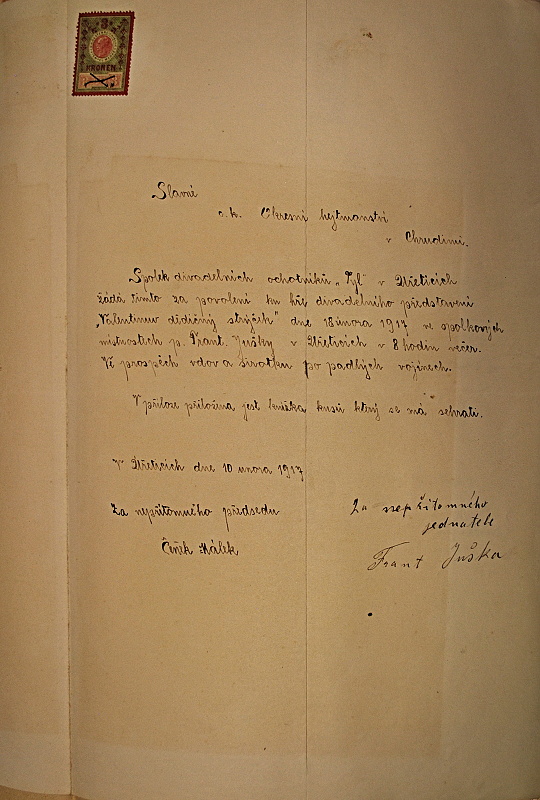 3
KRONEN
Slavné
c. k. Okresní hejtmanství
v Chrudimi.
Spolek divadelních ochotníků „Tyl" v Úhřeticích
žádá tímto za povolení ku hře divadelního představení
„Valentinův dědičný strýček" dne 18 února 1917 ve spolkových
místnostích p. Frant. Jušky v Úhřeticích v 8 hodin večer.
Ve prospěch vdov a sirotků po padlých vojínech.
V příloze přiložena jest knížka kusu který se má sehrati.
V Úhřeticích dne 10 února 1917
Za nepřítomného předsedu
Čeněk Málek
Za nepřítomného
jednatele
Frant Juška